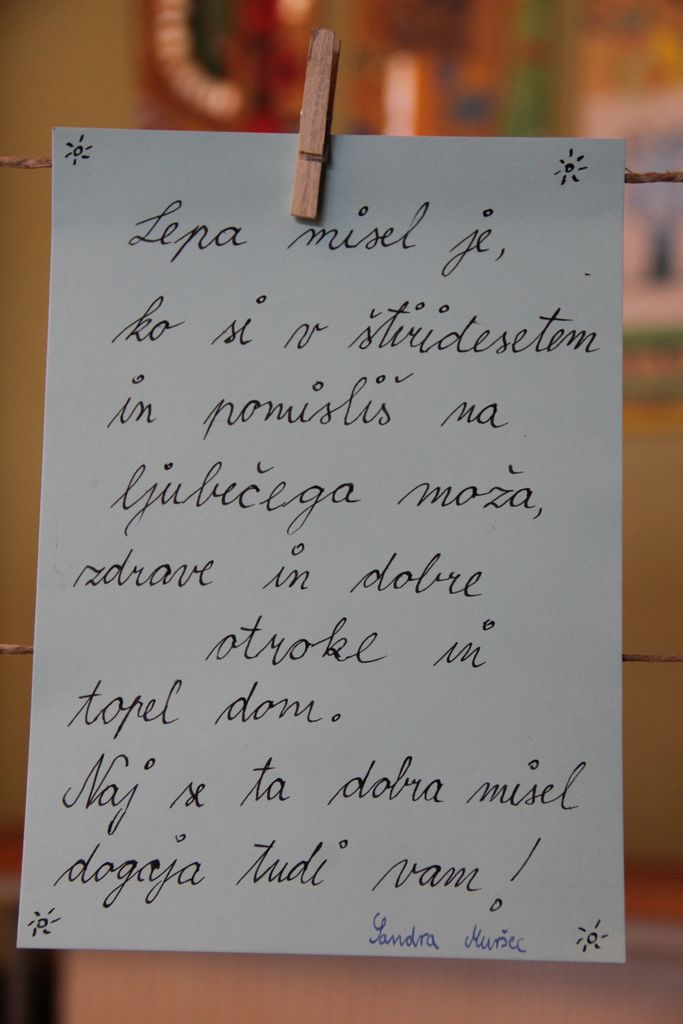 Lepa misel je,
ko si v štiridesetem
in pomisliš na
ljubečega moža,
zdrave in dobre
otroke in
topel dom.
Naj se ta dobra misel
dogaja tudi vam!
Sandra Muršec